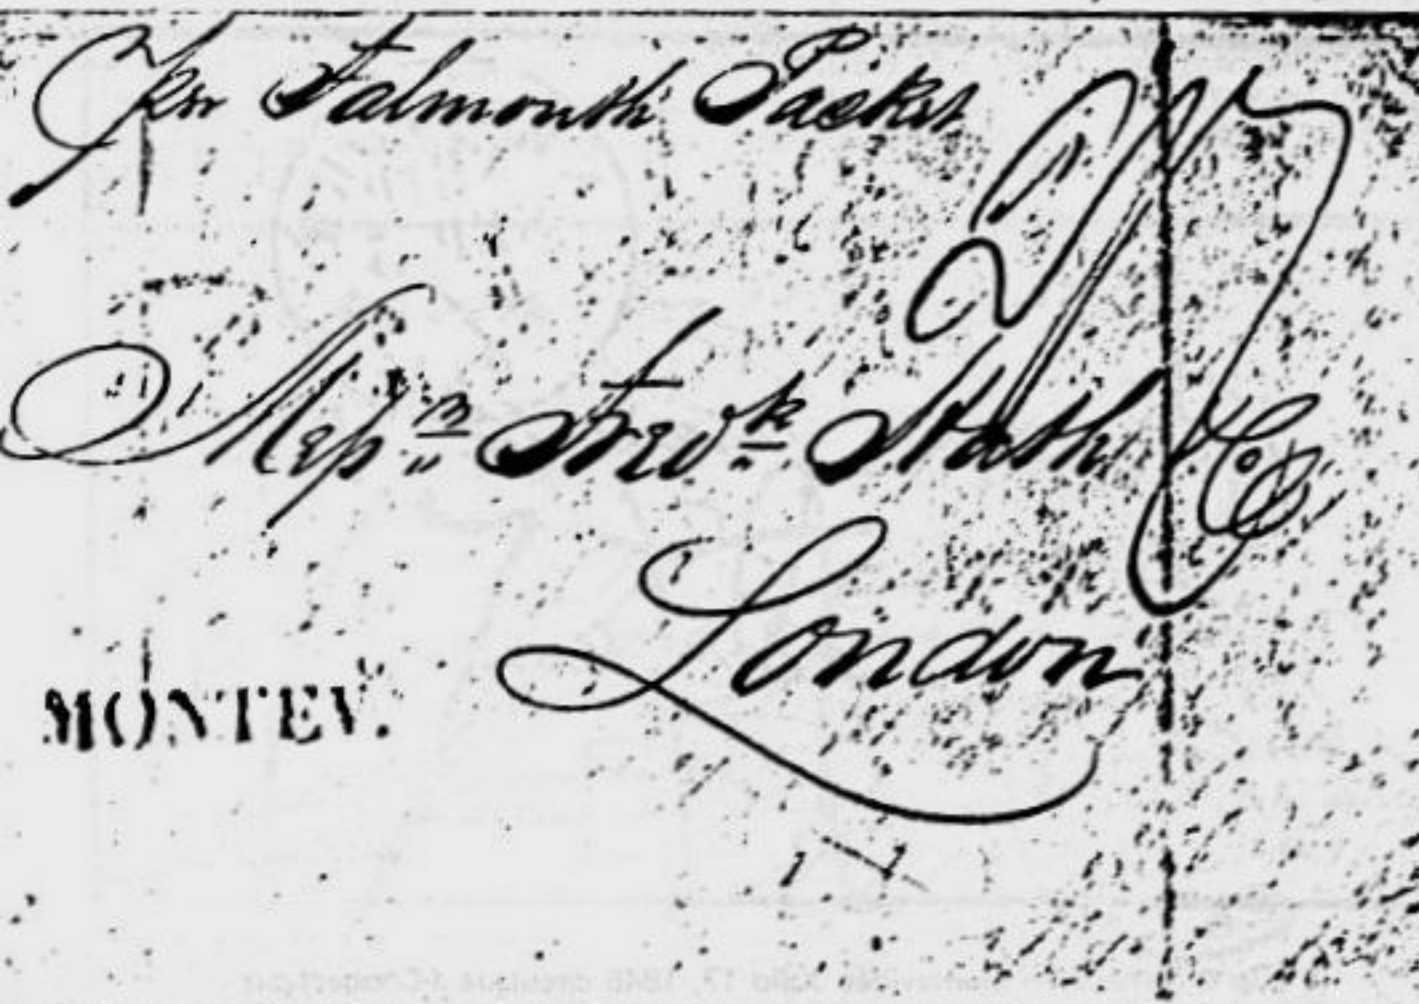 Per Falmouth Packet
Messrs Fredk Huth & Co
London
MONTEV.